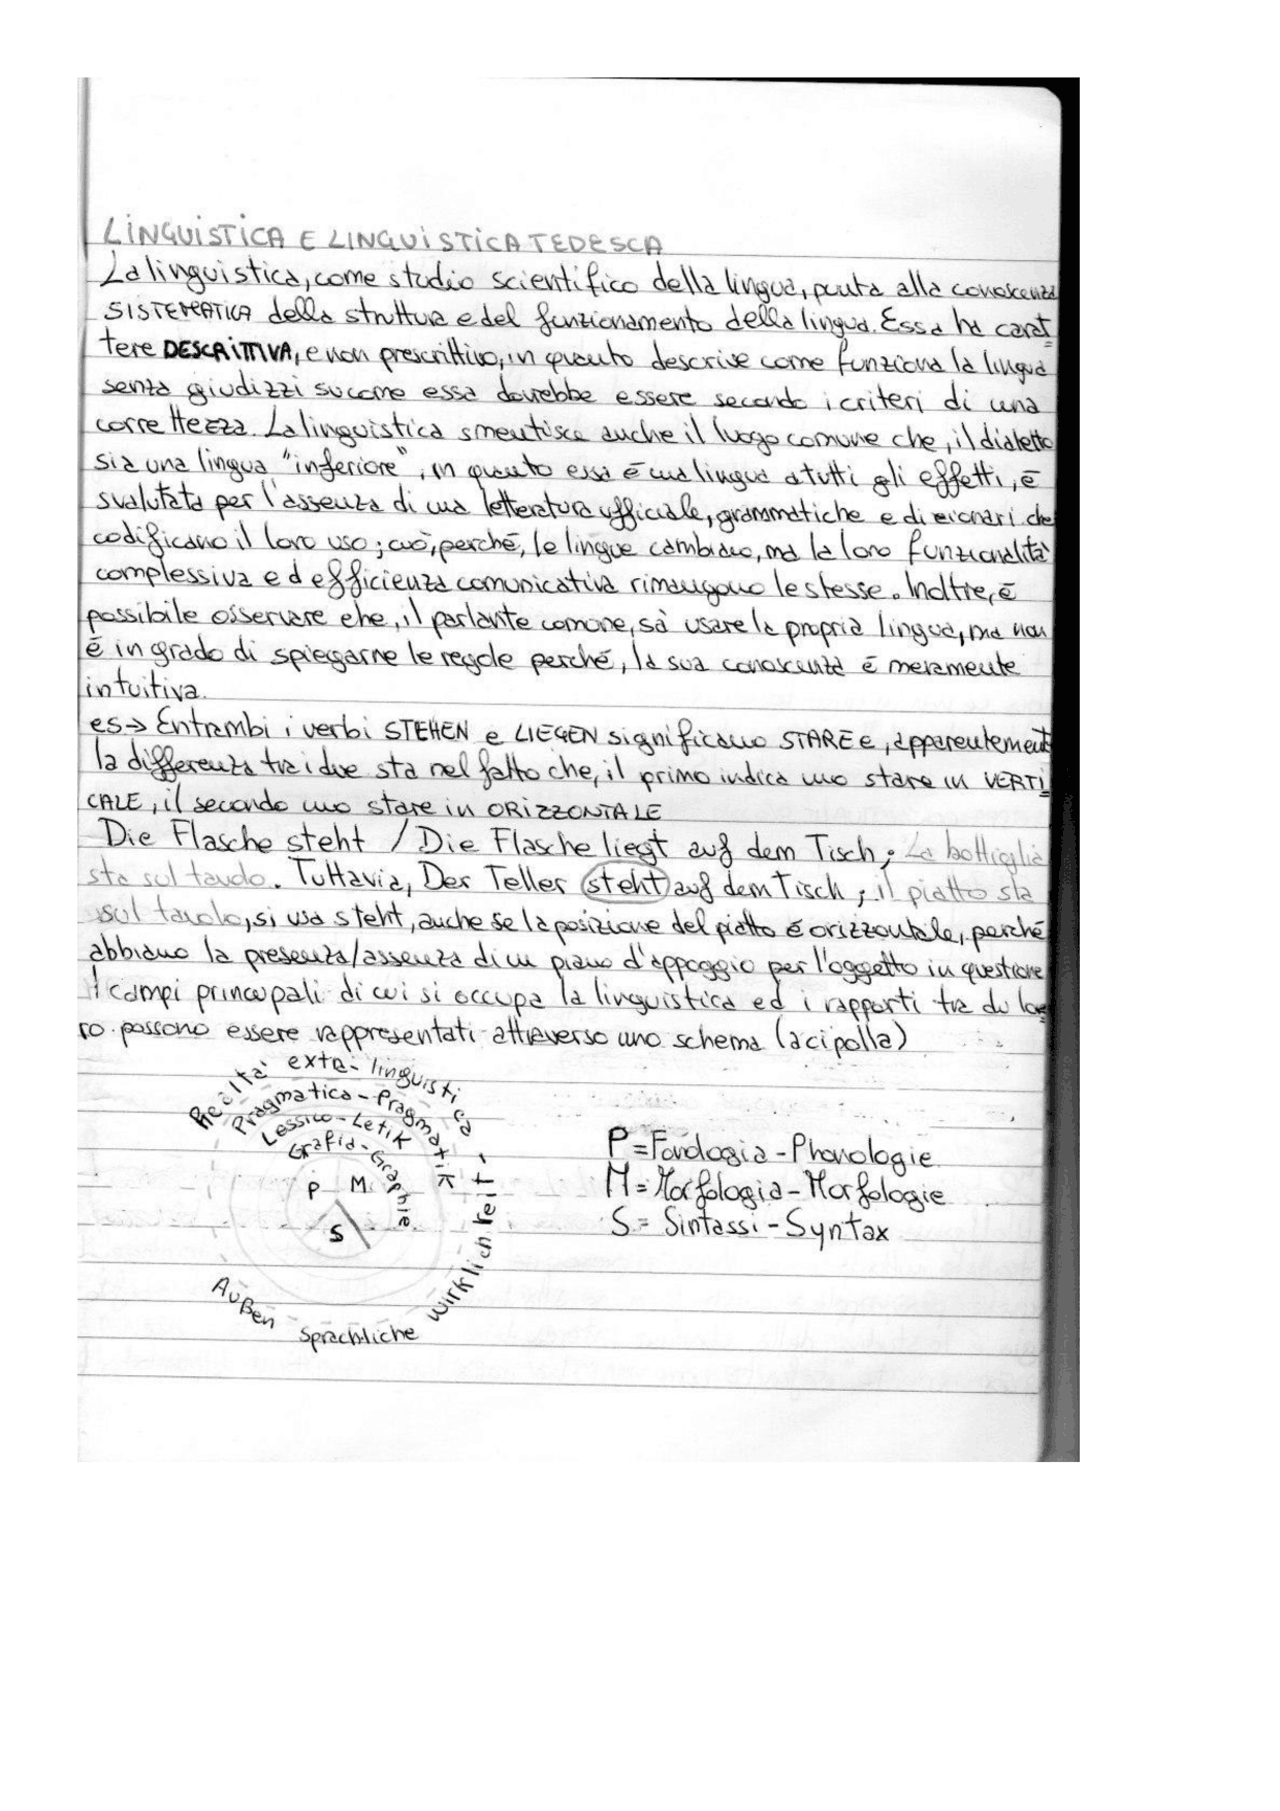 LINGUISTICA E LINGUISTICA TEDESCA
La linguistica, come studio scientifico della lingua, punta alla conoscenza
SISTEMATICA della struttura e del funzionamento della lingua. Essa ha carat
tere DESCRITTIVA, e non prescrittivo, in quanto descrive come funziona la lingua
senza giudizzi su come essa dovrebbe essere secondo i criteri di una
correttezza. La linguistica smentisce anche il luogo comune che, il dialetto
sia una lingua "inferiore", in quanto essa è una lingua a tutti gli effetti, è
svalutata per l'assenza di una letteratura ufficiale, grammatiche e dizionari che
codificano il loro uso; ciò, perché, le lingue cambiano, ma la loro funzionalità
complessiva ed efficienza comunicativa rimangono le stesse. Inoltre, è
possibile osservare che, il parlante comune, sà usare la propria lingua, ma non
è in grado di spiegarne le regole perché, la sua conoscenza è meramente
intuitiva.
es→ Entrambi i verbi STEHEN e LIEGEN significano STARE e, apparentement
la differenza tra i due sta nel fatto che, il primo indica uno stare in VERTI
CALE, il secondo uno stare in ORIZZONTALE
Die Flasche steht / Die Flasche liegt auf dem Tisch; La bottiglia
sta sul tavolo. Tuttavia, Der Teller steht auf dem Tisch; il piatto sta
sul tavolo, si usa steht, auche se la posizione del piatto è orizzontale, perché
abbiamo la presenza/assenza di un piano d'appoggio per l'oggetto in questione
I campi principali di cui si occupa la linguistica ed i rapporti tra di lo
ro possono essere rappresentati attraverso uno schema (a cipolla)
Realtà extra-linguistica
Pragmatica-Pragmatik
Lessico-Letik
Grafia-Graphie
P M
S
Außen Sprachliche Wirklichkeit
P = Fonologia - Phonologie
M = Morfologia - Morfologie
S = Sintassi - Syntax